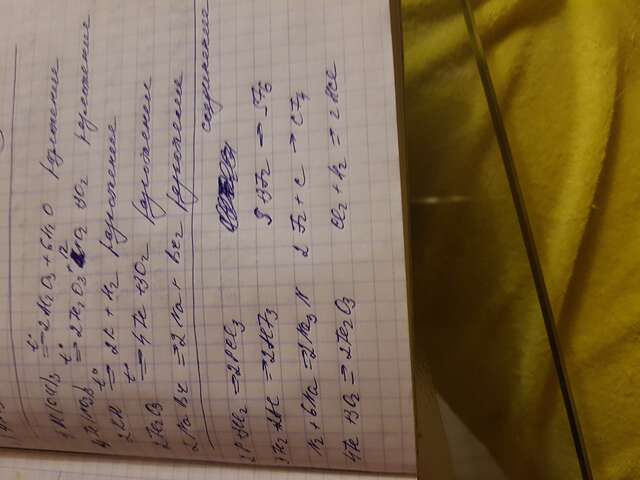 4Al(OH)3 =t°> 2Al2O3 + 6H2O разложение
4Fe(NO3)3 =t°> 2Fe2O3 + 12 NO2 3O2 разложение
2KH =t°> 2K + H2 разложение
2Fe2O3 =t°> 4Fe + 3O2 разложение
2NaBr => 2Na + Br2 разложение
соединение
2P+3Cl2 => 2PCl3
3F2 + 2Al => 2AlF3 S + 3F2 -> SF6
N2 + 6Na => 2Na3N 2F2 + C -> CF4
4Fe + 3O2 => 2Fe2O3 Cl2 + H2 => 2HCl